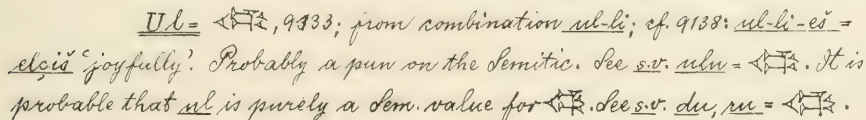 Ul = 𒌌, 9133; from combination ul-li; cf. 9138: ul-li-eš =
elçiš 'joyfully'. Probably a pun on the Semitic. See s.v. ulu = 𒌌. It is
probable that ul is purely a Sem. value for 𒌌. See s.v. du, ru = 𒌌.